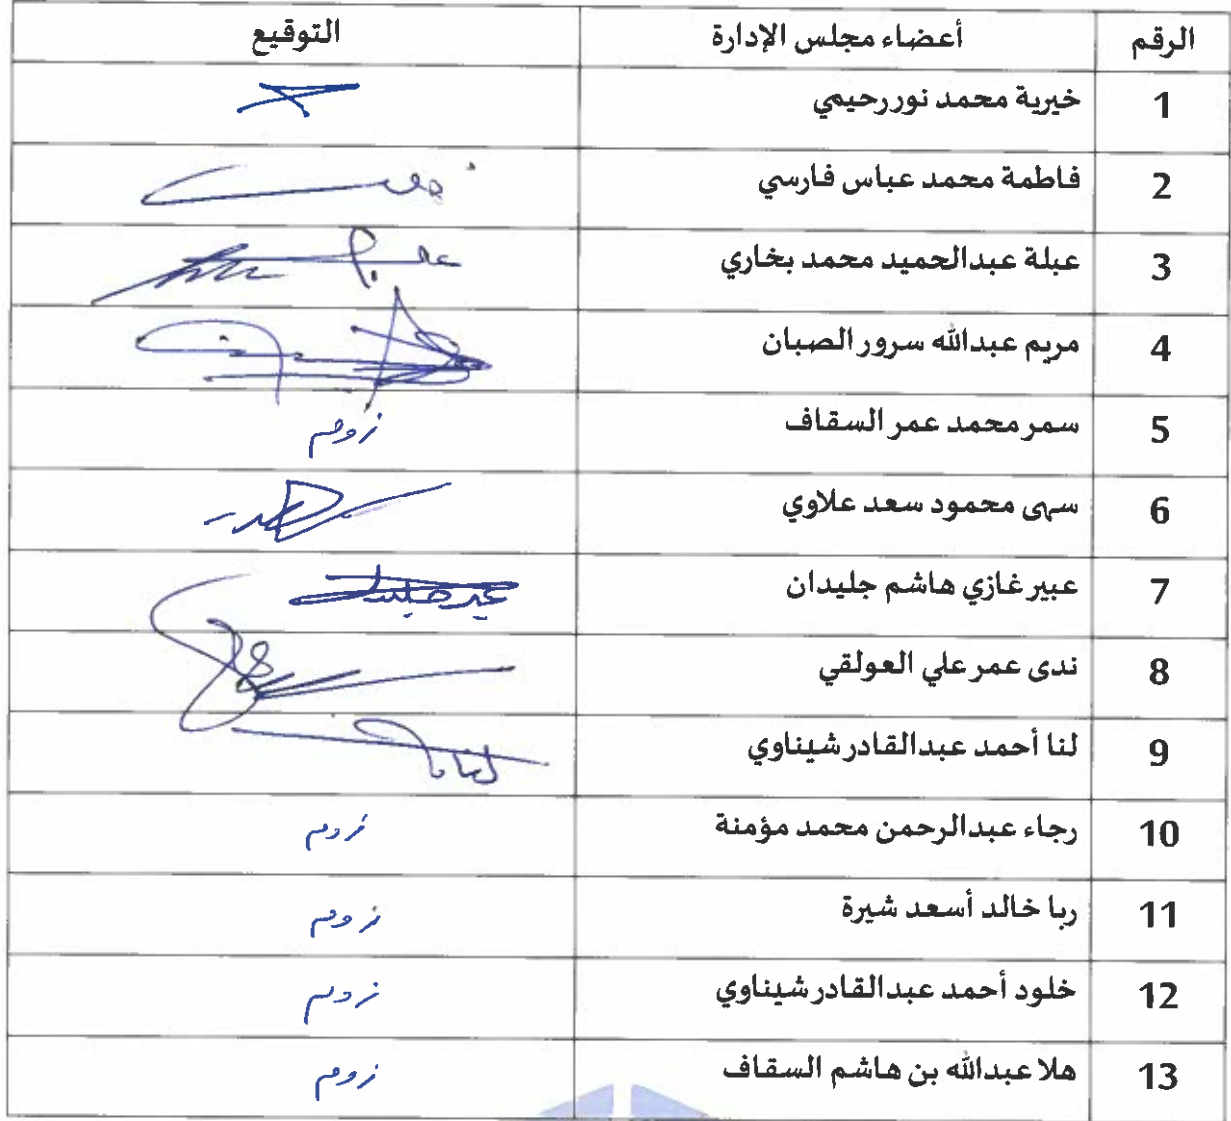 الرقم أعضاء مجلس الإدارة التوقيع
1 خيرية محمد نور رحيمي
2 فاطمة محمد عباس فارسي
3 عبلة عبدالحميد محمد بخاري
4 مريم عبدالله سرور الصبان
5 سمر محمد عمر السقاف زووم
6 سهى محمود سعد علاوي
7 عبير غازي هاشم جليدان عبير جليدان
8 ندى عمر علي العولقي
9 لنا أحمد عبدالقادر شيناوي لنا
10 رجاء عبدالرحمن محمد مؤمنة زووم
11 ربا خالد أسعد شيرة زووم
12 خلود أحمد عبدالقادر شيناوي زووم
13 هلا عبدالله بن هاشم السقاف زووم